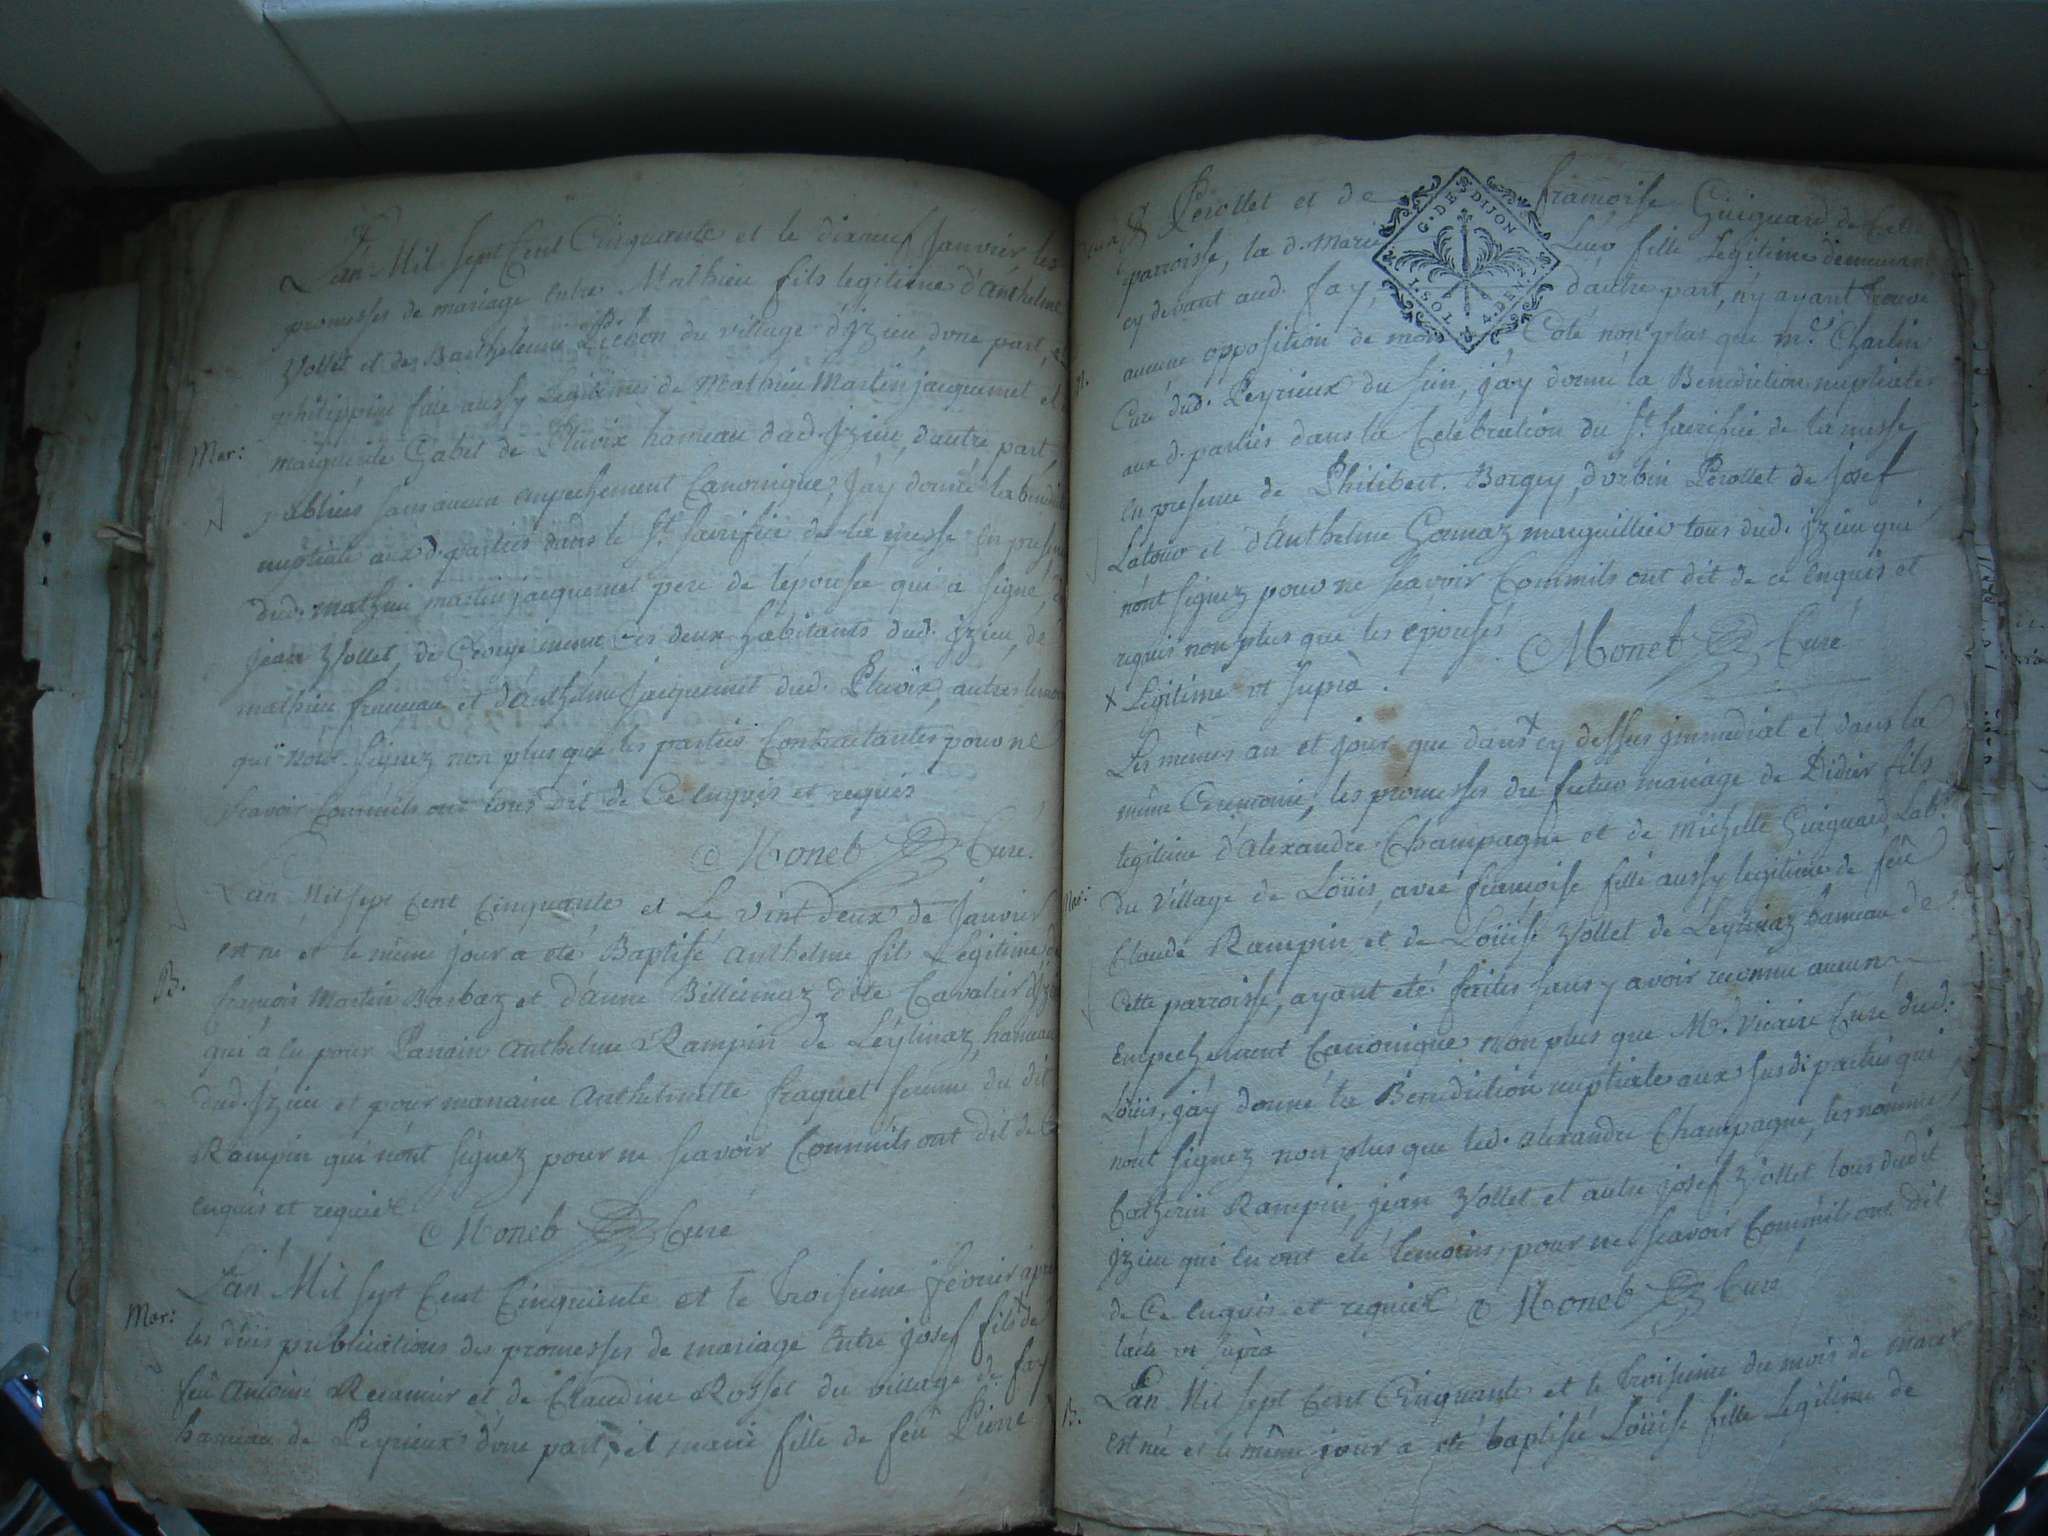 L'an Mil sept Cent Cinquante et le dixneuf Janvier les
promesses de mariage entre Mathieu fils legitime d'Anthelme
Zollet et de Barthelemie du village d'Izieu d'une part, et
philippine fille aussy Legitime de Mathieu Martin jacquemet et
Mar:
marguerite Gabet de Pluvix hameau dud. Izieu, d'autre part,
publiées sans aucun empechement Canonique, j'ay donné la
nuptiale aux d. parties dans le St. Sacrifice de la messe en
dud. Mathieu martin jacquemet pere de l'épousée qui a signé,
jean Zollet, de George ces deux habitants dud. Izieu, de
mathieu et d'Anthelme Jacquemet dud. Pluvix, autres
qui n'ont signez non plus que les parties Contractantes pour ne
scavoir Comm'ils ont tous dit de Ce enquis et requis
Monet Curé.
L'an Mil sept Cent Cinquante et Le vint deux de Janvier
est né et le même jour a été Baptisé Anthelme fils Legitime de
B.
françois Martin Barbaz et d'Anne Billiemaz dite Cavalier
qui a eu pour Parain Anthelme Rampin de Leÿlinaz, hameau
dud. Izieu et pour maraine Anthelmette fraquet femme du dit
Rampin qui n'ont signez pour ne scavoir Comm'ils ont dit de Ce
enquis et requis
Monet Curé
L'an Mil sept Cent Cinquante et le troisieme fevrier après
Mar:
les dües publications des promesses de mariage entre josef fils x de
feû Antoine Recamier et de Claudine Rosset du village de fay
hameau de Peyrieux d'une part, et marie fille de feû Pierre
Perollet et de françoise Guiguard de Cette
parroisse, la d. Marie fille Legitime demeurant
cy devant aud. fay, d'autre part, n'y ayant trouvé
aucune opposition de mon Coté non plus que mr. Charlin
G. DE DIJON
1. SOL 4. DEN.
Curé dud. Peyrieux du sien, j'ay donné la Benediction nuptiale
aux d. parties dans la Celebration du St. sacrifice de la messe
en presence de Philibert Borgey, d'urbin Perollet de josef
Latour et d'Anthelme Gomaz marguillier tous dud. Izieu qui
n'ont signez pour ne scavoir Comm'ils ont dit de ce enquis et
requis non plus que les épousés
Monet Curé
x Legitime ut suprà.
Les mêmes an et jour que dans x cy dessus immediat et dans la
même Ceremonie, les promesses du futur mariage de Didier fils
legitime d'Alexandre Champagne et de michelle Guiguard, Lab.r
Mar:
du village de Loüis, avec françoise fille aussy legitime de feû
Claude Rampin et de Loüise Zollet de Leylinaz hameau de
Cette parroisse, ayant eté faites sans y avoir reconnu aucun
empechement Canonique non plus que Mr. Vicaire Curé dud.
Loüis, j'ay donné la Benediction nuptiale aux susd. parties qui
n'ont signez non plus que led. Alexandre Champagne, les nommés
Catherin Rampin, jean Zollet et autre josef Zollet tous dudit
Izieu qui en ont eté temoins, pour ne scavoir Comm'ils ont dit
de Ce enquis et requis
Monet Curé
l'acte ut suprà
L'an Mil sept Cent Cinquante et le troisieme du mois de mars
B.
est née et le même jour a eté baptisée Loüise fille Legitime de